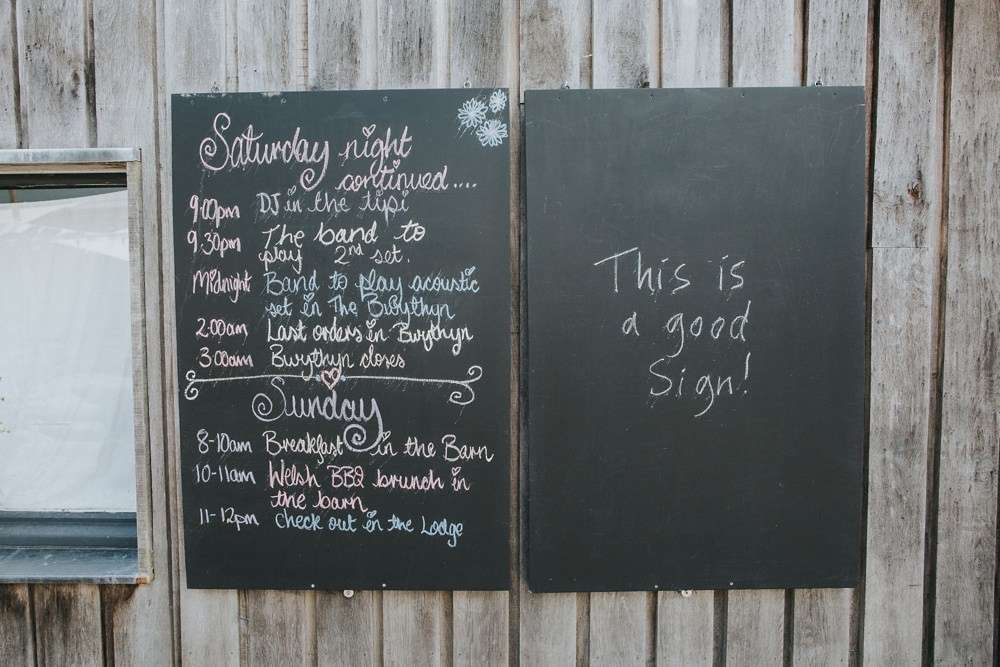 Saturday night
continued....
9:00pm DJ in the tipi
9.30pm The band to
play 2nd set.
Midnight Band to play acoustic
set in The Bwythyn
2:00am Last orders in Bwythyn
3:00am Bwythyn closes
Sunday
8-10am Breakfast in the Barn
10-11am Welsh BBQ brunch in
the barn
11-12pm Check out in the Lodge
This is
a good
Sign!